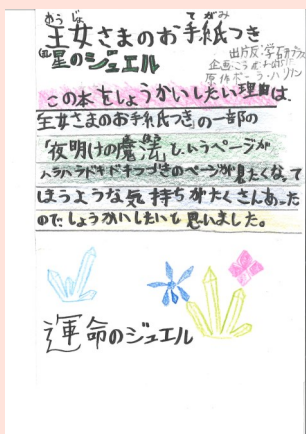 おうじょ てがみ
王女さまのお手紙つき
星のジュエル
出版
企画
原作 ポーラ・ハリソン
この本をしょうかいしたい理由は、
王女さまのお手紙つきの一部の
「夜明けの魔法」というページが
ハラハラドキドキつづきのページが見たくなって
しまうような気持ちがたくさんあった
のでしょうかいしたいと思いました。
運命のジュエル